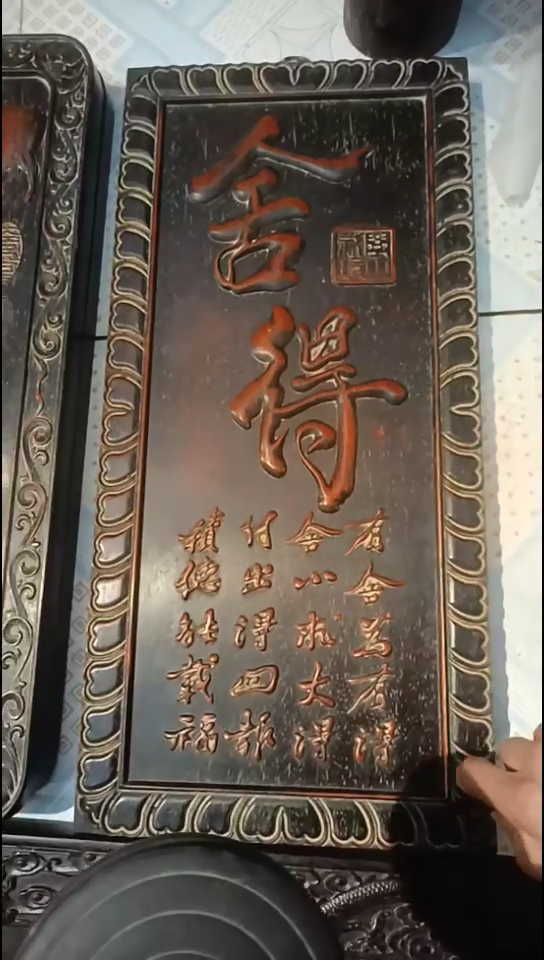 舍得
有舍蓝有得
舍小求大得
付出得回報
積德能載福